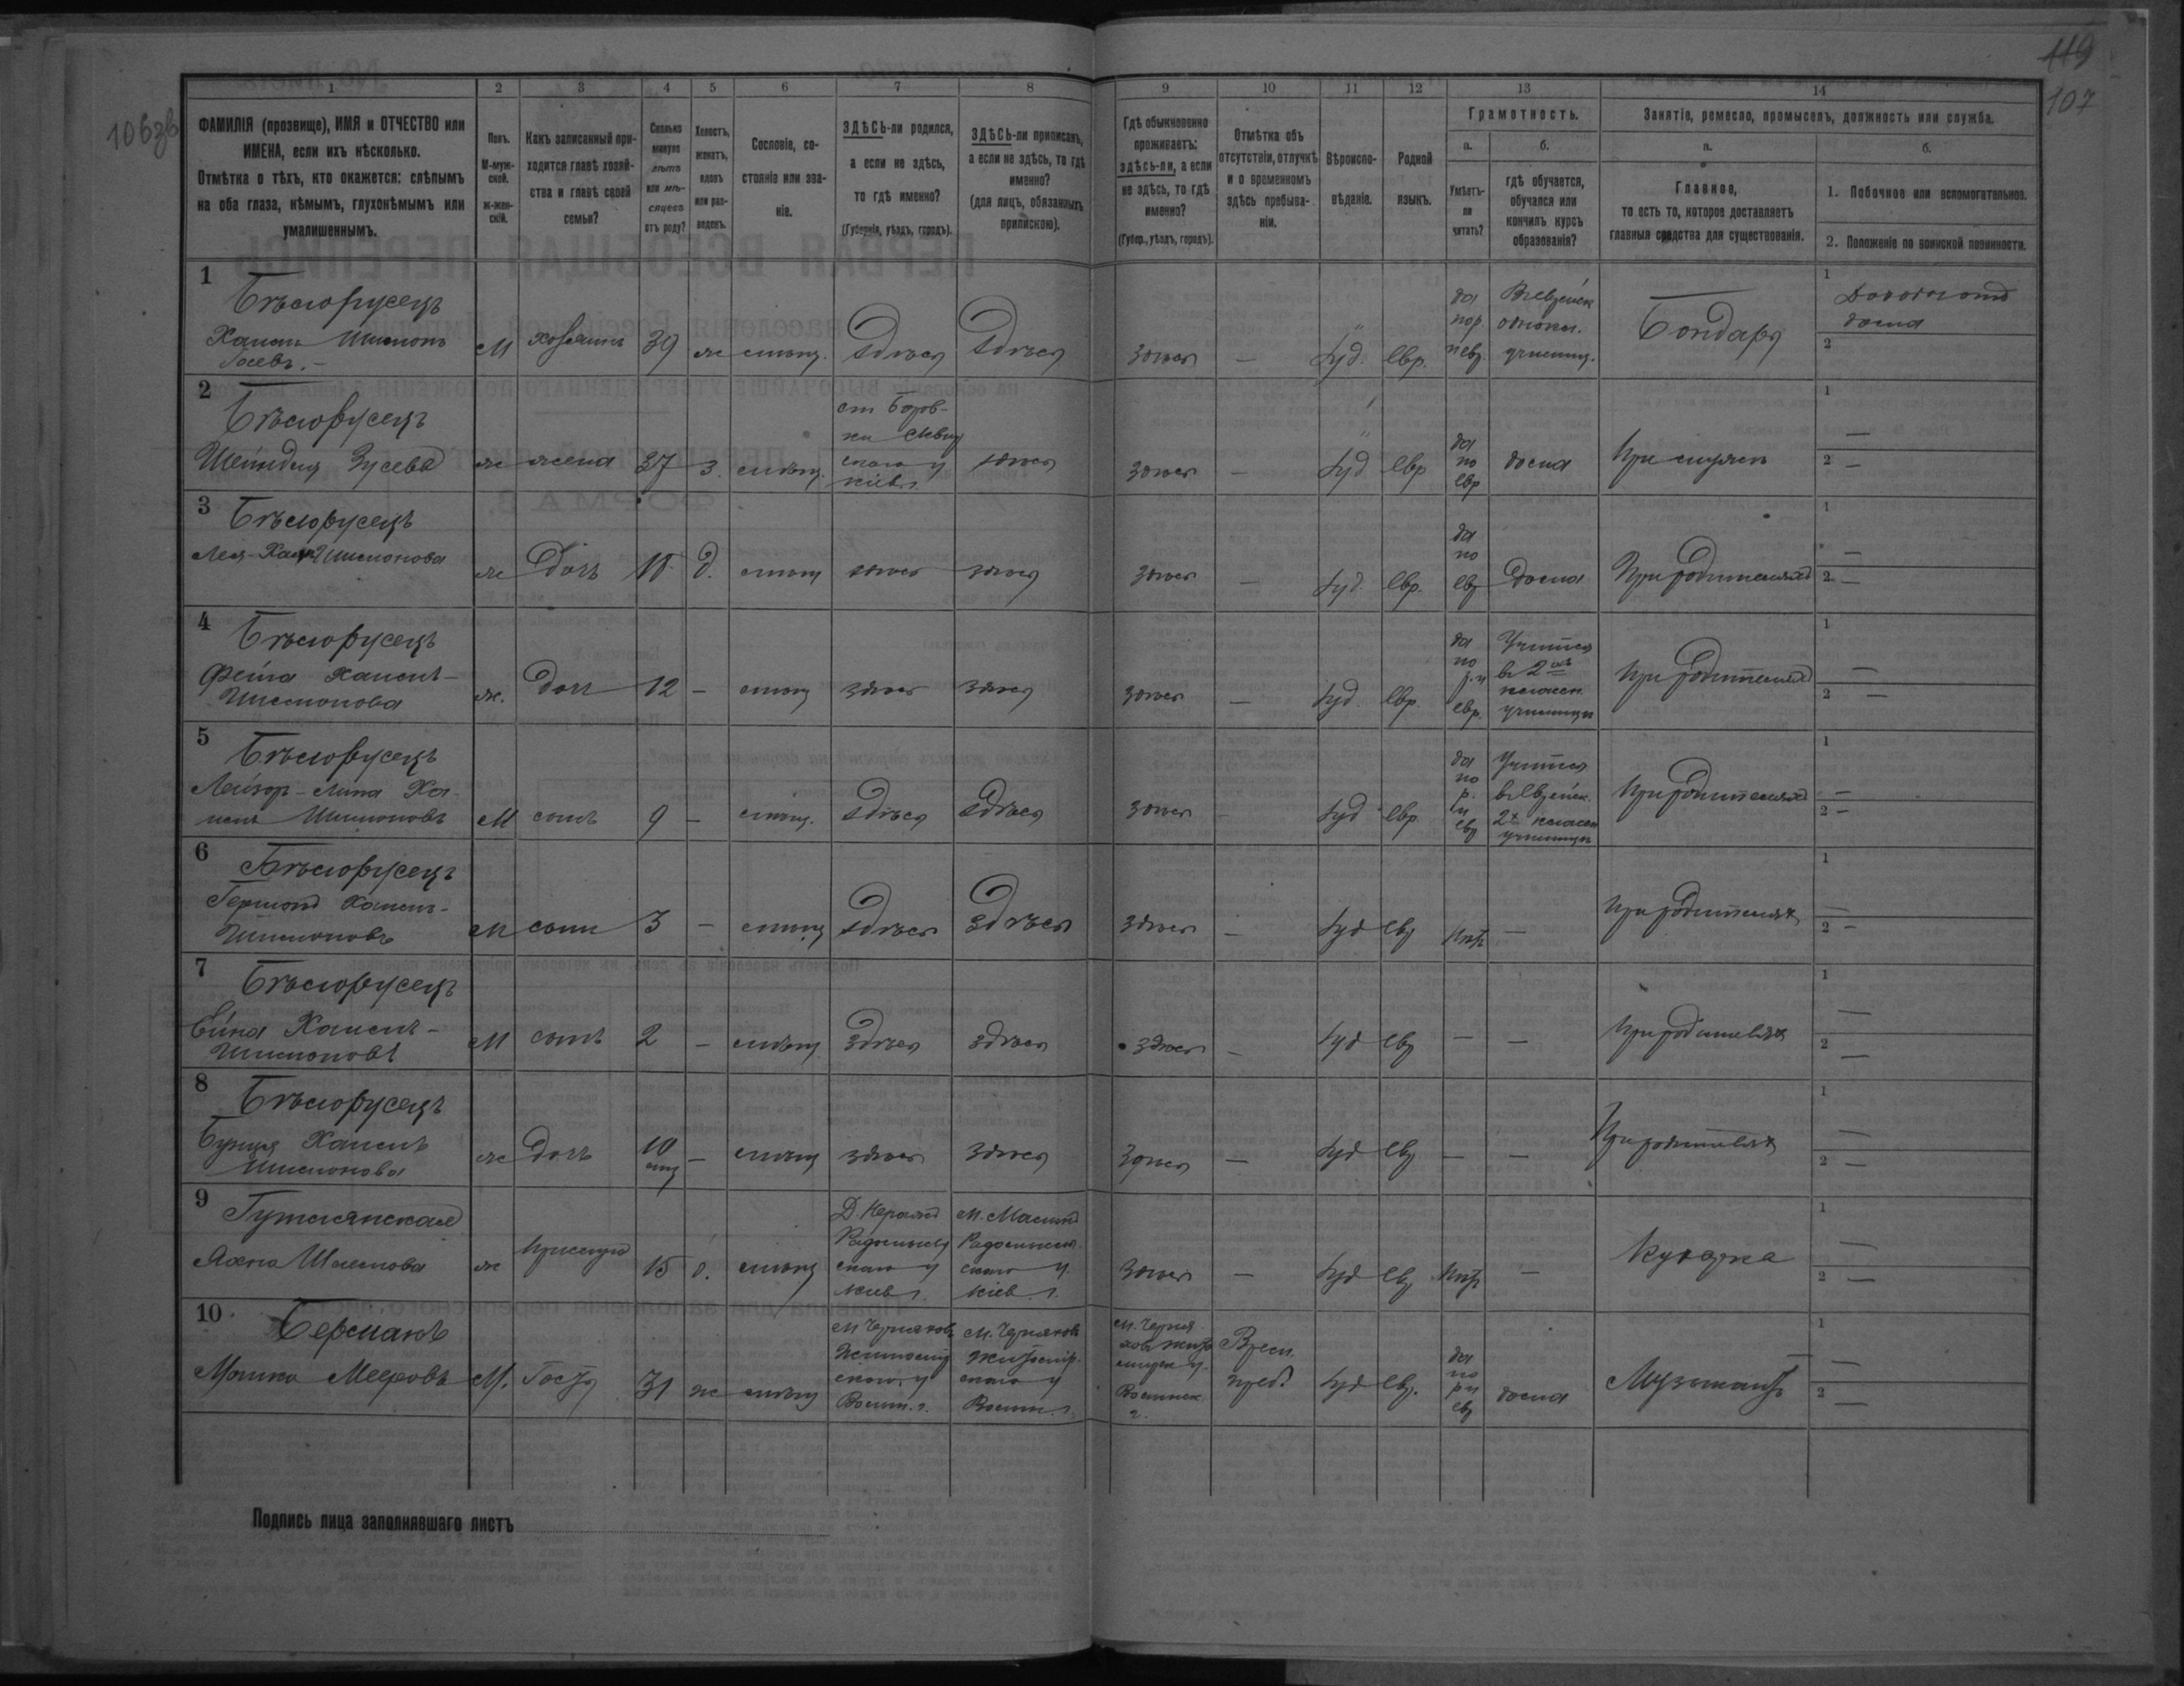 119
107
106зв
1 2 3 4 5 6 7 8 9 10 11 12 13 14
ФАМИЛІЯ (прозвище), ИМЯ и ОТЧЕСТВО или
ИМЕНА, если ихъ нѣсколько.
Отмѣтка о тѣхъ, кто окажется: слѣпымъ
на оба глаза, нѣмымъ, глухонѣмымъ или
умалишеннымъ.
Полъ.
М-муж-
ской.
ж-жен-
скій.
Какъ записанный при-
ходится главѣ хозяй-
ства и главѣ своей
семьи?
Сколько
минуло
лѣтъ
или мѣ-
сяцевъ
отъ роду?
Холостъ,
женатъ,
вдовъ
или раз-
веденъ.
Сословіе, со-
стояніе или зва-
ніе.
ЗДѢСЬ-ли родился,
а если не здѣсь,
то гдѣ именно?
(Губернія, уѣздъ, городъ).
ЗДѢСЬ-ли приписанъ,
а если не здѣсь, то гдѣ
именно?
(для лицъ, обязанныхъ
припискою).
Гдѣ обыкновенно
проживаетъ:
здѣсь-ли, а если
не здѣсь, то гдѣ
именно?
(Губер., уѣздъ, городъ).
Отмѣтка объ
отсутствіи, отлучкѣ
и о временномъ
здѣсь пребыва-
ніи.
Вѣроиспо-
вѣданіе.
Родной
языкъ.
Грамотность.
а.
Умѣетъ-
ли
читать?
б.
гдѣ обучается,
обучался или
кончилъ курсъ
образованія?
Занятіе, ремесло, промыселъ, должность или служба.
а.
Главное,
то есть то, которое доставляетъ
главныя средства для существованія.
б.
1. Побочное или вспомогательное.
2. Положеніе по воинской повинности.
1
Бѣлорусецъ
Хаимъ Шимонъ
М хозяинъ 39 ж мѣщ. здѣсь здѣсь здѣсь — Іуд. евр.
да
училищ.
Бондарь
1
2
2
Бѣлорусецъ
Шейндля Зусева
ж жена 37 з. мѣщ.
кіев г.
здѣсь здѣсь — Іуд евр
да
по
евр
дома
1 —
2 —
3
Бѣлорусецъ
Шимонова
ж дочь д. мѣщ здѣсь здѣсь здѣсь — Іуд. евр.
да
по
ев
дома
При родителяхъ
1 —
2 —
4
Бѣлорусецъ
Фейга Хаимъ-
Шимонова
ж. дочь 12 — мѣщ здѣсь здѣсь здѣсь — Іуд. евр.
да
по
р. и
евр.
Учится
въ 2хъ
классн
училищѣ
при родителяхъ
1 —
2 —
5
Бѣлорусецъ
Ха-
имъ Шимоновъ
М сынъ 9 — мѣщ. здѣсь здѣсь здѣсь — Іуд евр
да
по
р.
и
ев
Учится
въ еврейск.
2х классн
училищѣ
при родителяхъ
1 —
2 —
6
Бѣлорусецъ
Хаимъ-
Шимоновъ
М сынъ 3 — мѣщ здѣсь здѣсь здѣсь — Іуд ев нѣтъ —
при родителяхъ
1 —
2 —
7
Бѣлорусецъ
Хаимъ-
Шимоновъ
М сынъ 2 — мѣщ здѣсь здѣсь здѣсь — Іуд ев — —
при родителяхъ
1 —
2 —
8
Бѣлорусецъ
Хаимъ
Шимонова
ж дочь 10 — мѣщ здѣсь здѣсь здѣсь — Іуд ев — —
При родителяхъ
1 —
2 —
9
Шлемова
ж прислуга 15 д. мѣщ
Радомысль
скаго у
кіев г.
Радомысль
скаго у.
кіев. г.
здѣсь — Іуд ев нѣтъ —
Кухарка
1 —
2 —
10
Берманъ
Мееровъ
М. Гость 31 ж мѣщ
М Черняхов
Житомір
скаго у
Волын. г.
М. Черняхов
Житомір
скаго у
Волын. г.
М. Черня
хов Жито
мирск у.
Волынск.
г.
Врем.
преб.
Іуд ев.
да
по
р и
ев
дома
Музыкантъ
1 —
2 —
Подпись лица заполнявшаго листъ